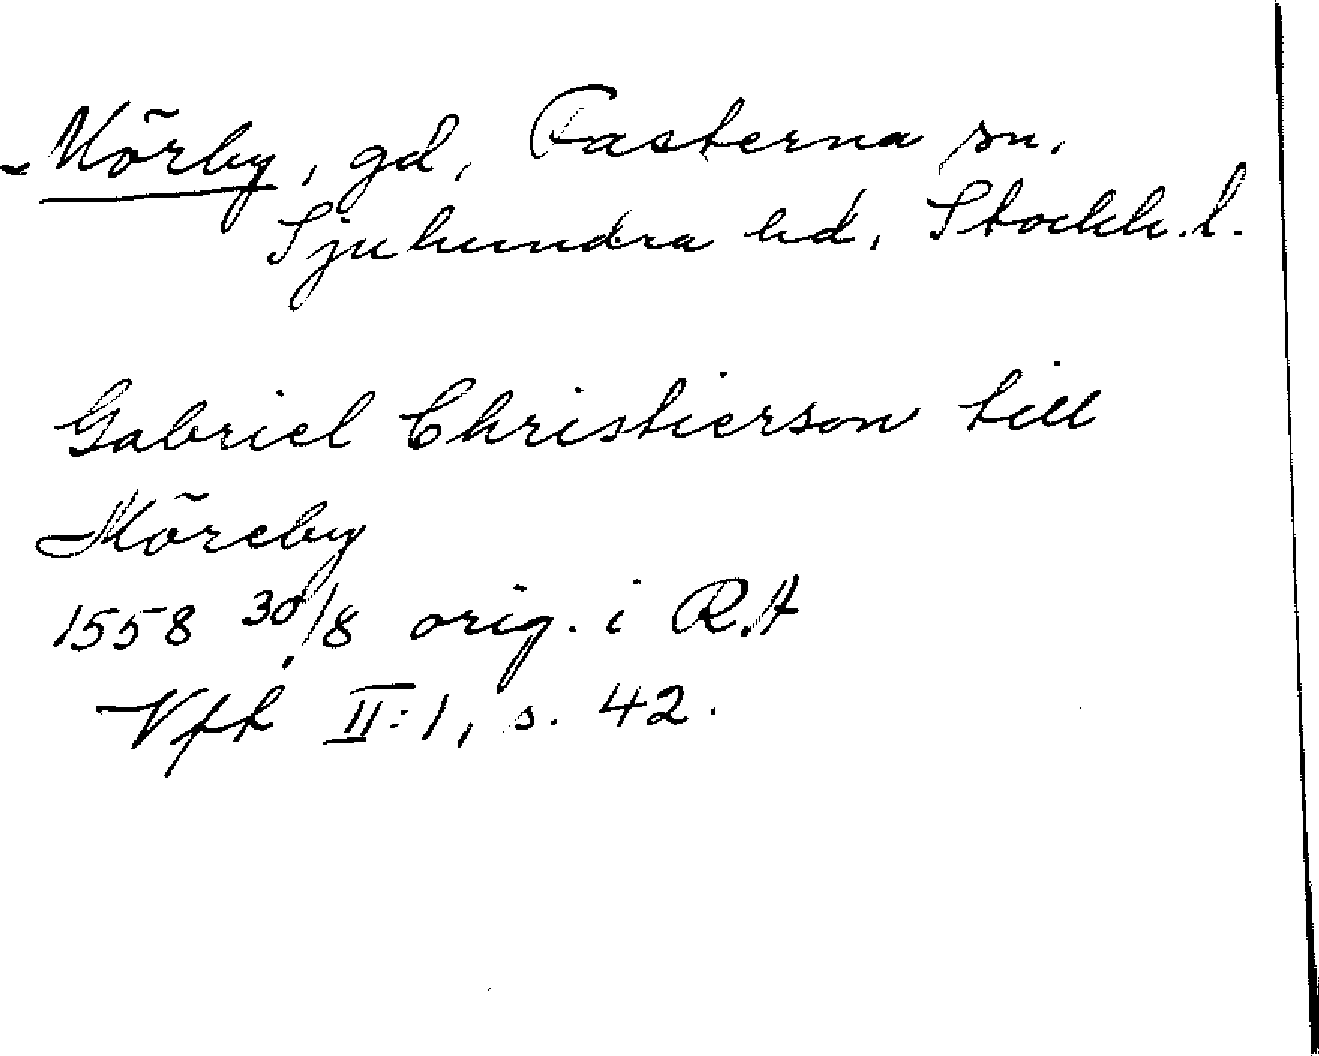 Mörby, gd, Fasterna sn.
Sjuhundra hd, Stockh. l.
Gabriel Christierson till
Möreby
1558 30/8 orig. i RA
II:1, s. 42.